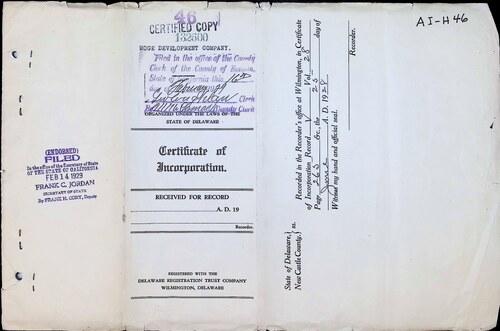 AI-H46
46
CERTIFIED COPY
132600
HOGE DEVELOPMENT COMPANY.
Filed in the office of the County
Clerk of the County of
State of California this 16th
day of February 1929
Clerk
By Deputy Clerk
ORGANIZED UNDER THE LAWS OF THE
STATE OF DELAWARE
Certificate of
Incorporation.
RECEIVED FOR RECORD
A. D. 19
Recorder.
REGISTERED WITH THE
DELAWARE REGISTRATION TRUST COMPANY
WILMINGTON, DELAWARE
(ENDORSED)
FILED
In the office of the Secretary of State
OF THE STATE OF CALIFORNIA
FEB 14 1929
FRANK C. JORDAN
SECRETARY OF STATE
By FRANK H. CORY, Deputy
State of Delaware,
New Castle County, } ss.
Recorded in the Recorder's office at Wilmington, in Certificate
of Incorporation Record V Vol. 28
Page 263 &c., the 25 day of
June A. D. 1928
Witness my hand and official seal.
Recorder.